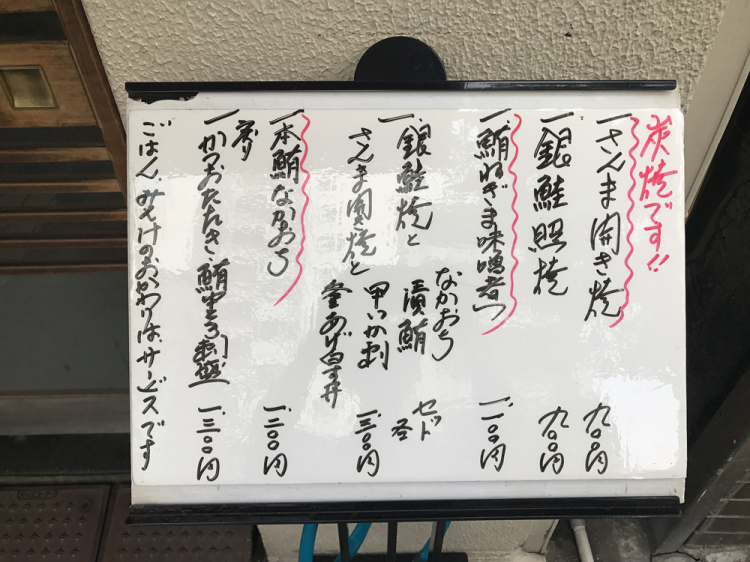 炭焼です!!
一、さんま開き焼 九〇〇円
一、銀鮭照焼 九〇〇円
一、鮪ねぎま味噌煮つ 一、一〇〇円
一、銀鮭焼と なかおち 漬鮪 セット
さんま開き焼と 甲いか刺 釜あげしらす丼 各 一、三〇〇円
一、本鮪なかおち 一、二〇〇円
一、かつおたたき・鮪中とろ刺盛 一、三〇〇円
ごはん、みそ汁のおかわりはサービスです